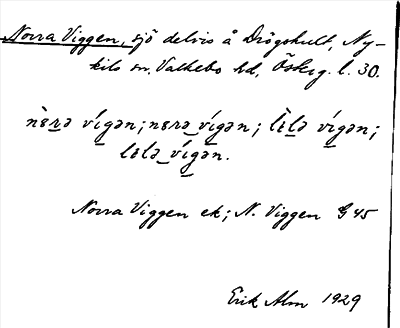 Norra Viggen, sjö delvis å Drögshult, Ny-
kils sn, Valkebo hd, Österg. l. 30.
vígən; vígən; vígən;
vígən.
Norra Viggen ek; N. Viggen G 45
Erik Alm 1929